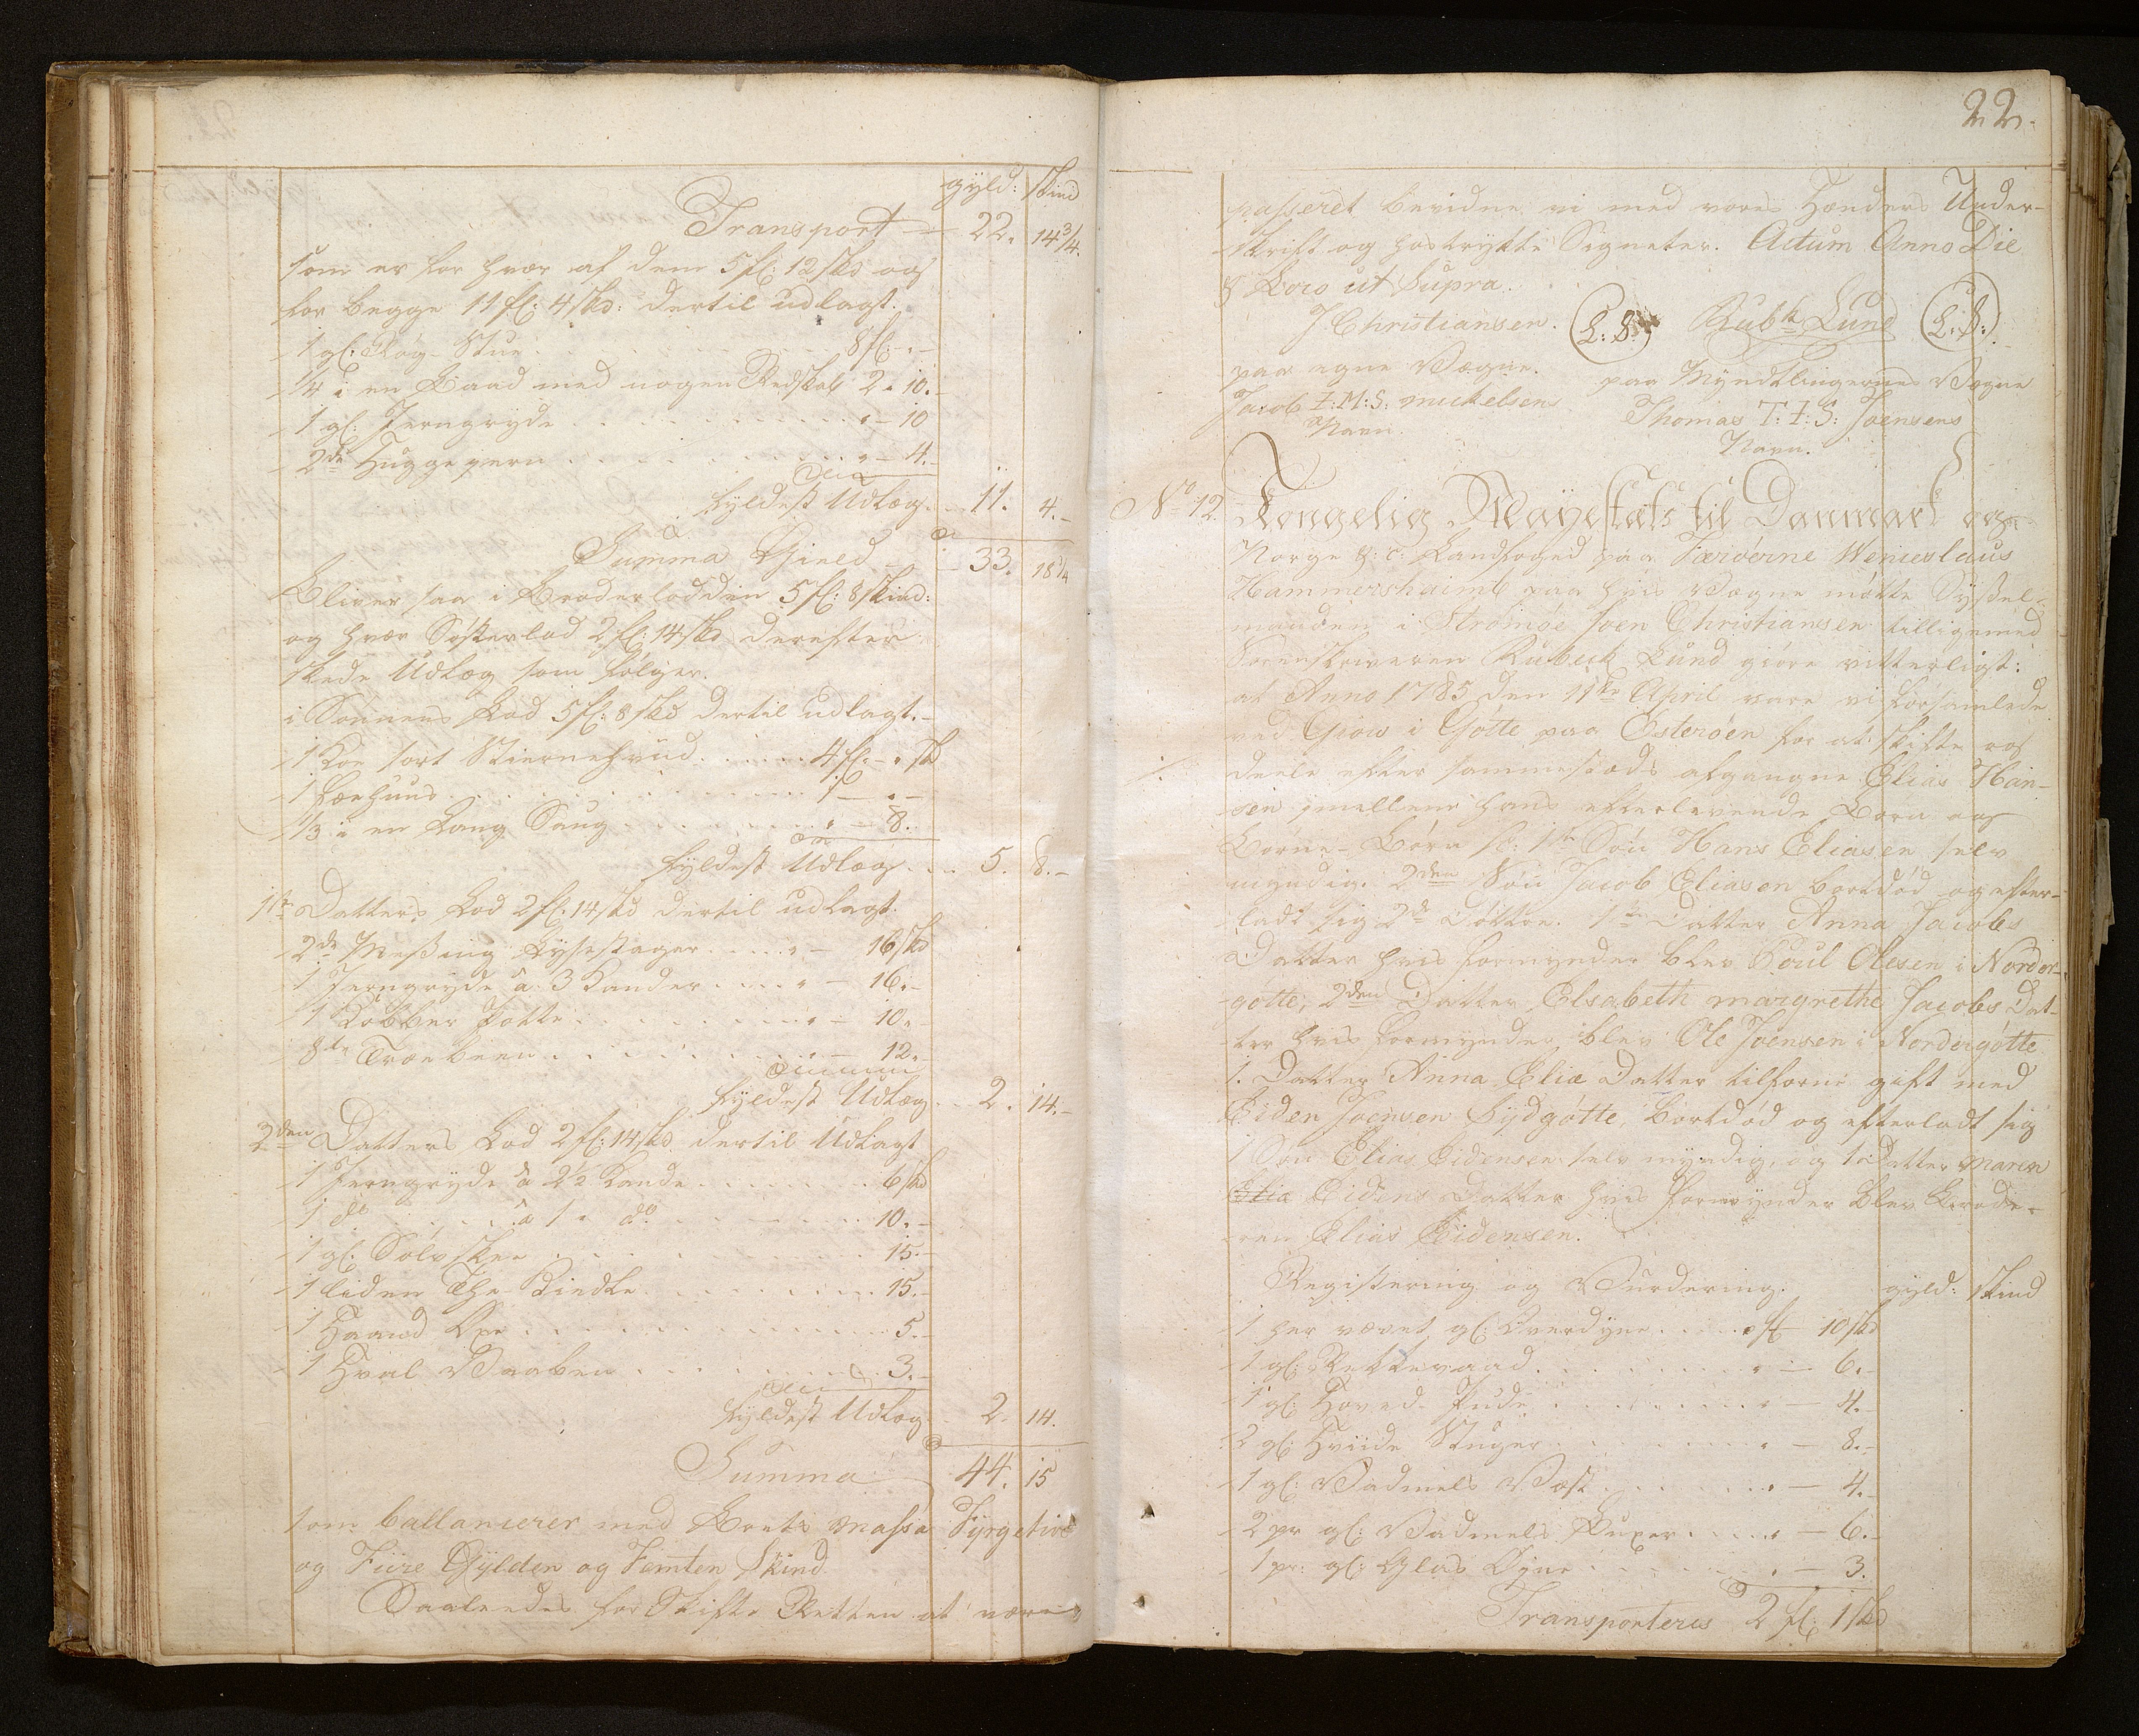 gyld: skind
Transport — 22. 14¾.
som er for hvær af dem 5 fl: 12 skd og
for begge 11 fl: 4 skd: dertil udlagt.
1 gl: Røg-Stue . . . 8 fl: - . -
¼ i en Baad med nogen Redskab 2 - 10.-
1 gl: Jerngryde . . . . - 10
2de Huggejern . . . . - 4.-
fyldest Udlæg. . . 11. 4.-
Summa Gield — 33. 18¾
Bliver saa i Broderlodden 5 fl: 8 skind:
og hvær Søsterlod 2 fl: 14 skd, derefter
skede Udlæg som følger.
i Sønnens Lod 5 fl: 8 skd dertil udlagt.-
1 Koe sort Stiernehvud . . . 4 fl: - . sk
1 . . . 1 - . -
⅓ i en Lang Saug . . . . - 8.
fyldest Udlæg . . . 5. 8.-
1ste Datters Lod 2 fl: 14 skd dertil udlagt.
2de Meßing Lysestager . . . . - 16 skd
1 Jerngryde a 3 Kander . . . . - 16.-
1 Kobber Potte . . . . - 10.-
8te Træbeen . . . . - 12.-
fyldest Udlæg . . 2. 14.-
2den Datters Lod 2 fl: 14 skd. dertil Udlagt
1 Jerngryde a 2½ Kande . . . 6 skd
1 do . . . a 1. do . . . 10.-
1 gl: Sølvskee . . . 15.-
1 liden The-Kiedle . . . 15.-
1 Haand Øxe . . . 5.-
1 Hval Vaaben . . . 3.-
fyldest Udlæg. 2. 14.
Summa 44. 15
som ballancerer med Boets massa Fyrgetive
og Fiire Gylden og Femten Skind
Saaledes for Skifte Retten at være
22.
passeret bevidne vi med vores Hænders Under-
skrift og hostrykte Signeter. Actum Anno Die
& Loco ut Supra.
J. Christiansen. (L: S:) Rubk Lund (L: S:)
paa egne Vægne. paa Myndtlingernes Vægne
Jacob I: M: S: mickelsens Thomas T: I: S: Joensens
Navn. Navn.
No 12. Kongelig Mayestæts til Danmark og
Norge &: c: Landfoged paa Færøerne Wenceslaus
Hammershaimb paa hvis Vægne mötte Syßel-
manden i Strömöe Joen Christiansen tilligemed
Sorenskriveren Rubeck Lund giöre vitterligt:
at Anno 1785 den 11te April vare vi forsamlede
ved Giow i Götte paa Österöen for at skifte og
deele efter sammestæds afgangne Elias Han-
sen imellem hans efterlevende Börn og
Börne-Börn sc: 1ste Sön Hans Eliasen selv
myndig. 2den Sön Jacob Eliasen bortdöd og efter-
ladt sig 2de Döttre. 1ste Datter Anna Jacobs
Datter hvis formynder blev Poul Olesen i Nordre-
götte, 2den Datter Elsabeth margrethe Jacobs Dat-
ter hvis formynder blev Ole Joensen i Nordregötte
1. Datter Anna Eliæ Datter tilforne gift med
Eiden Joensen Sydgötte, bortdöd og efterladt sig
1 Sön Elias Eidensen selv myndig, og 1 Datter Maren
Elia Eidens Datter hvis formynder blev Brode-
ren Elias Eidensen.
Registering og Vurdering. gyld: skind
1 her vævet gl: Overdyne . . . . fl 10 skd
1 gl: Rekkevaad . . . . - 6.-
1 gl: Hoved-Pude . . . . - 4.-
2 gl: Hviide . . . . - 8.-
1 gl: Vadmels Væst . . . . - 4.-
2 pr gl: Vadmels Buxer . . . . - 6.-
1 pr: gl: Glas Öyne . . . . - 3.
Transporteres 2 fl: 1 skd